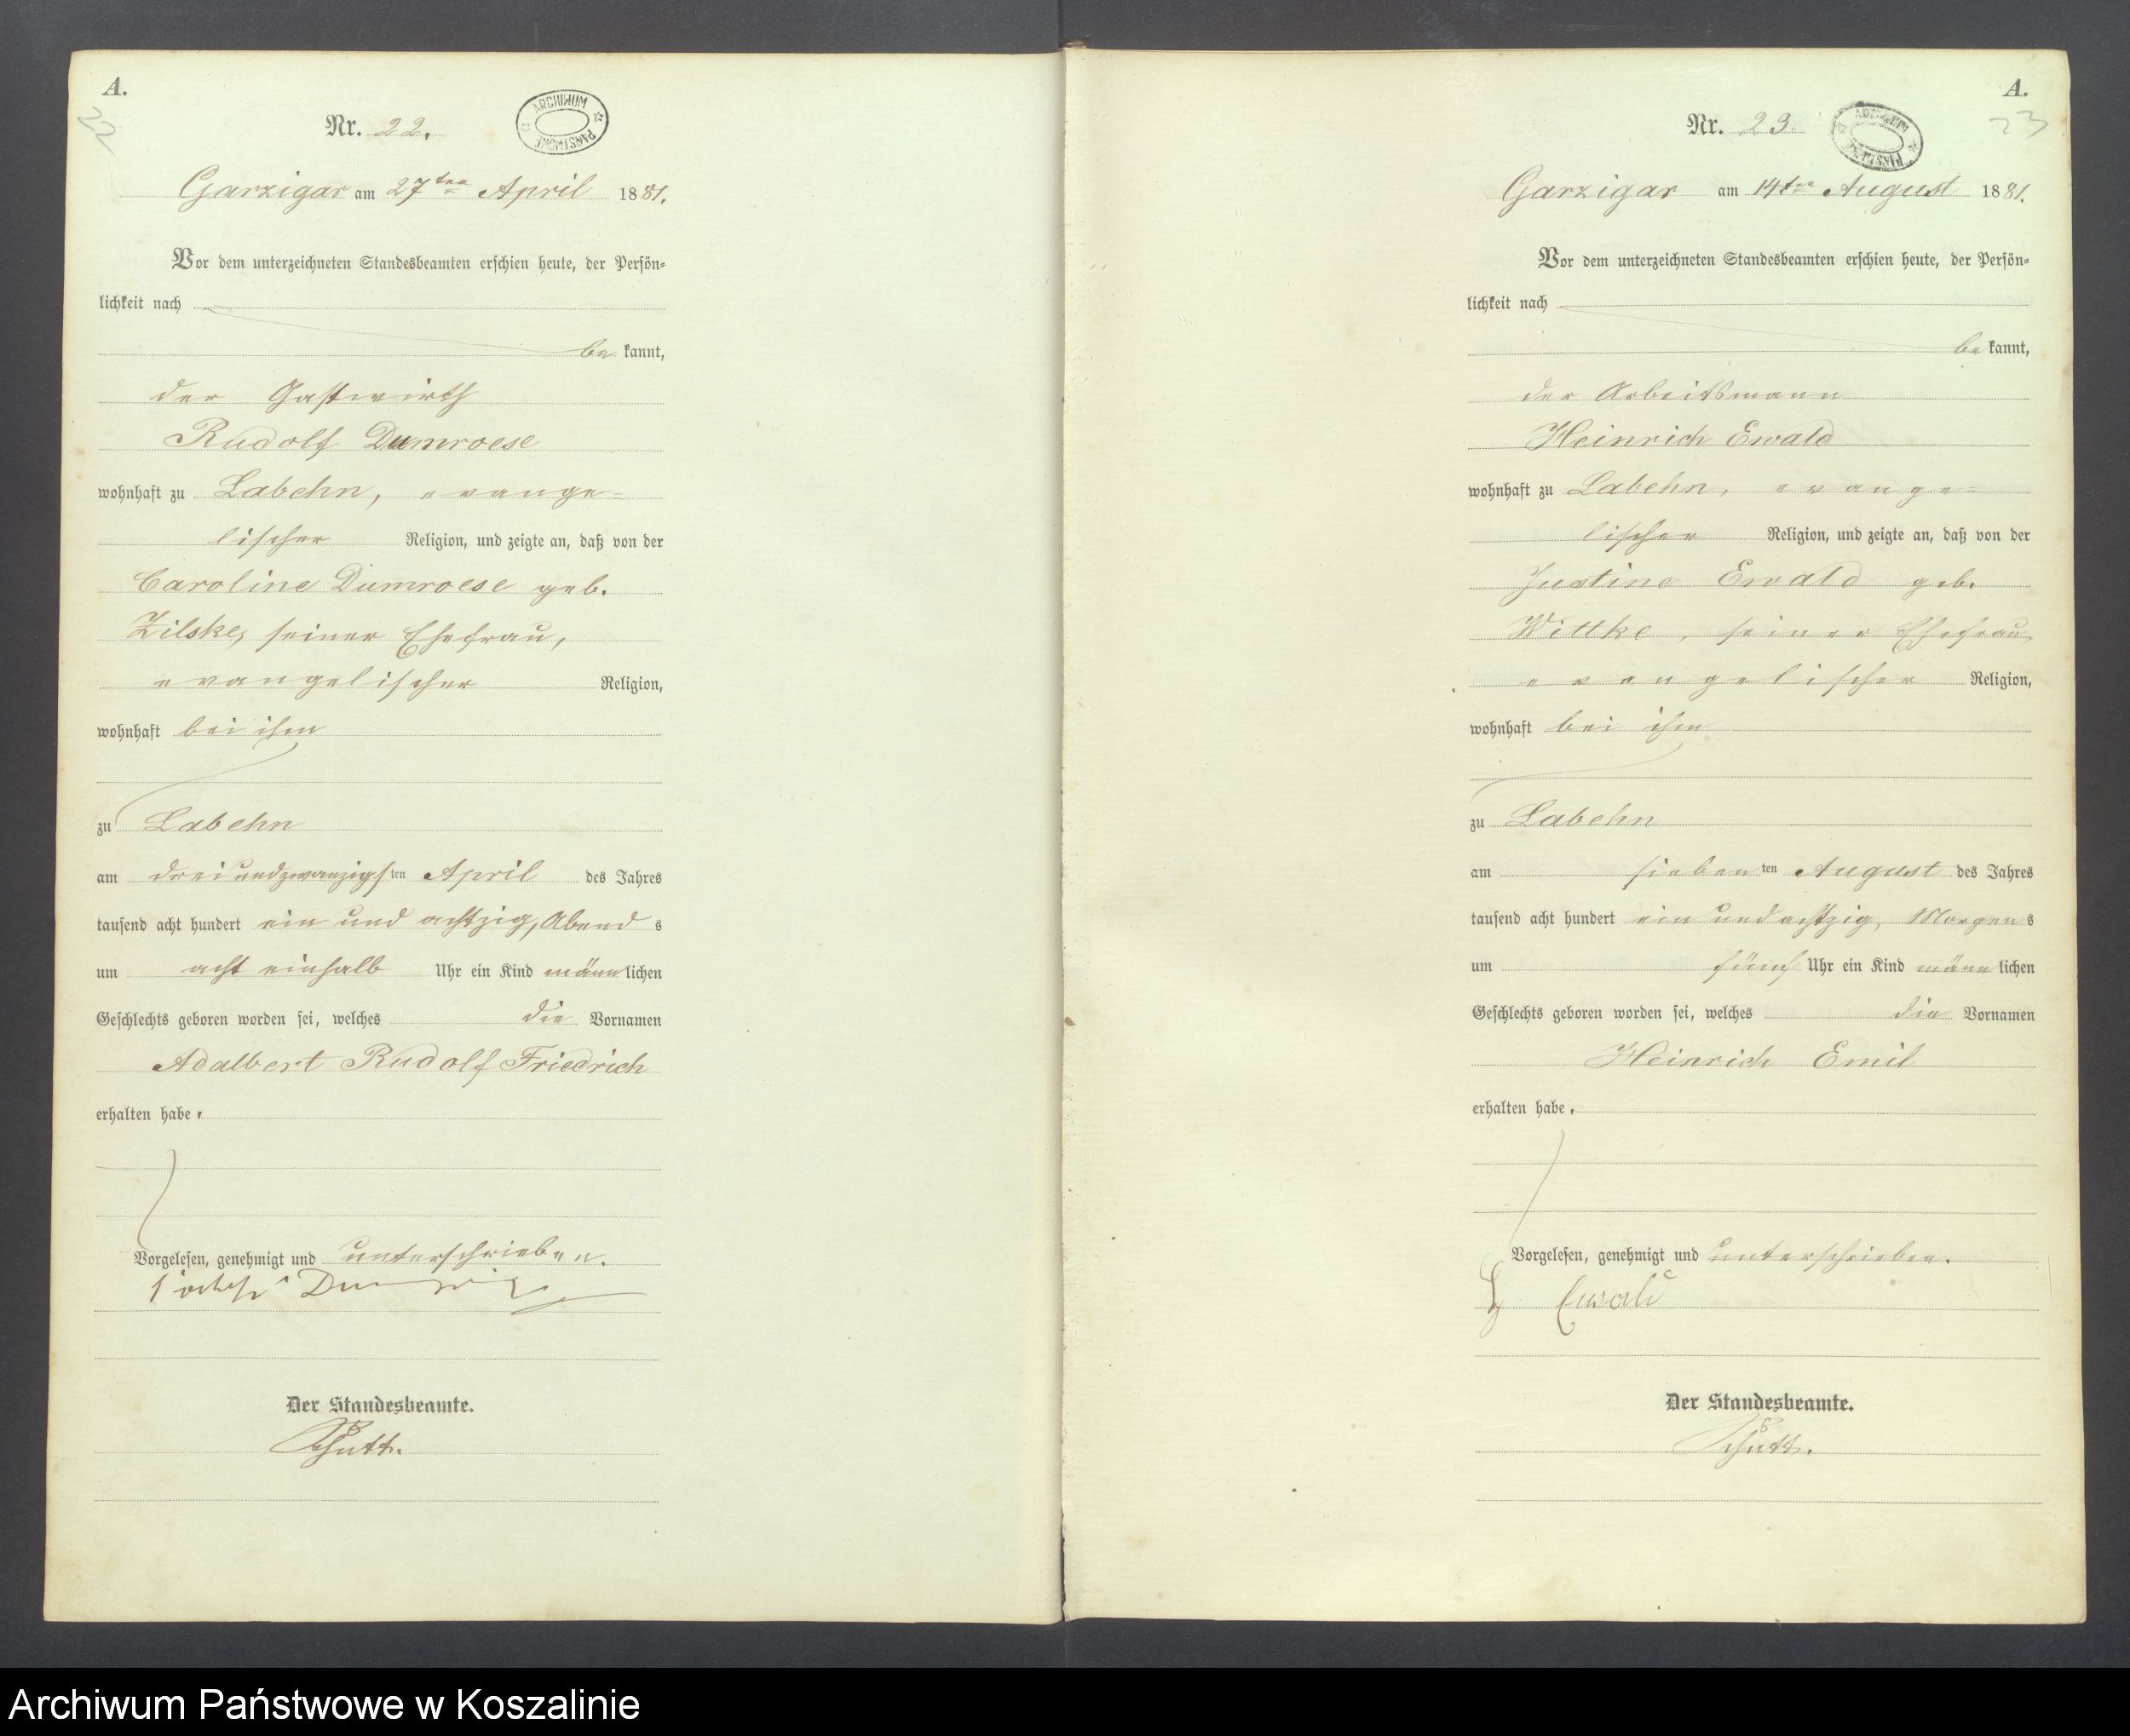 A.
22
Nr. 22.
ARCHIWUM PAŃSTWOWE
Garzigar am 27ten April 1881.
Vor dem unterzeichneten Standesbeamten erschien heute, der Persön-
lichkeit nach
be kannt,
der Gastwirth
Rudolf Dumroese
wohnhaft zu Labehn, evange-
lischer Religion, und zeigte an, daß von der
Caroline Dumroese geb.
Zilske, seiner Ehefrau,
evangelischer Religion,
wohnhaft bei ihm
zu Labehn
am dreiundzwanzigsten April des Jahres
tausend acht hundert ein und achtzig, Abends
um acht einhalb Uhr ein Kind männlichen
Geschlechts geboren worden sei, welches die Vornamen
Adalbert Rudolf Friedrich
erhalten habe.
Vorgelesen, genehmigt und unterschrieben.
Der Standesbeamte.
A.
23
Nr. 23.
ARCHIWUM PAŃSTWOWE
Garzigar am 14ten August 1881.
Vor dem unterzeichneten Standesbeamten erschien heute, der Persön-
lichkeit nach
be kannt,
der Arbeitsmann
Heinrich Ewald
wohnhaft zu Labehn, evange-
lischer Religion, und zeigte an, daß von der
Justine Ewald geb.
Wittke, seiner Ehefrau,
evangelischer Religion,
wohnhaft bei ihm
zu Labehn
am siebenten August des Jahres
tausend acht hundert ein und achtzig, Morgens
um fünf Uhr ein Kind männlichen
Geschlechts geboren worden sei, welches die Vornamen
Heinrich Emil
erhalten habe.
Vorgelesen, genehmigt und unterschrieben.
Ewald
Der Standesbeamte.
Archiwum Państwowe w Koszalinie